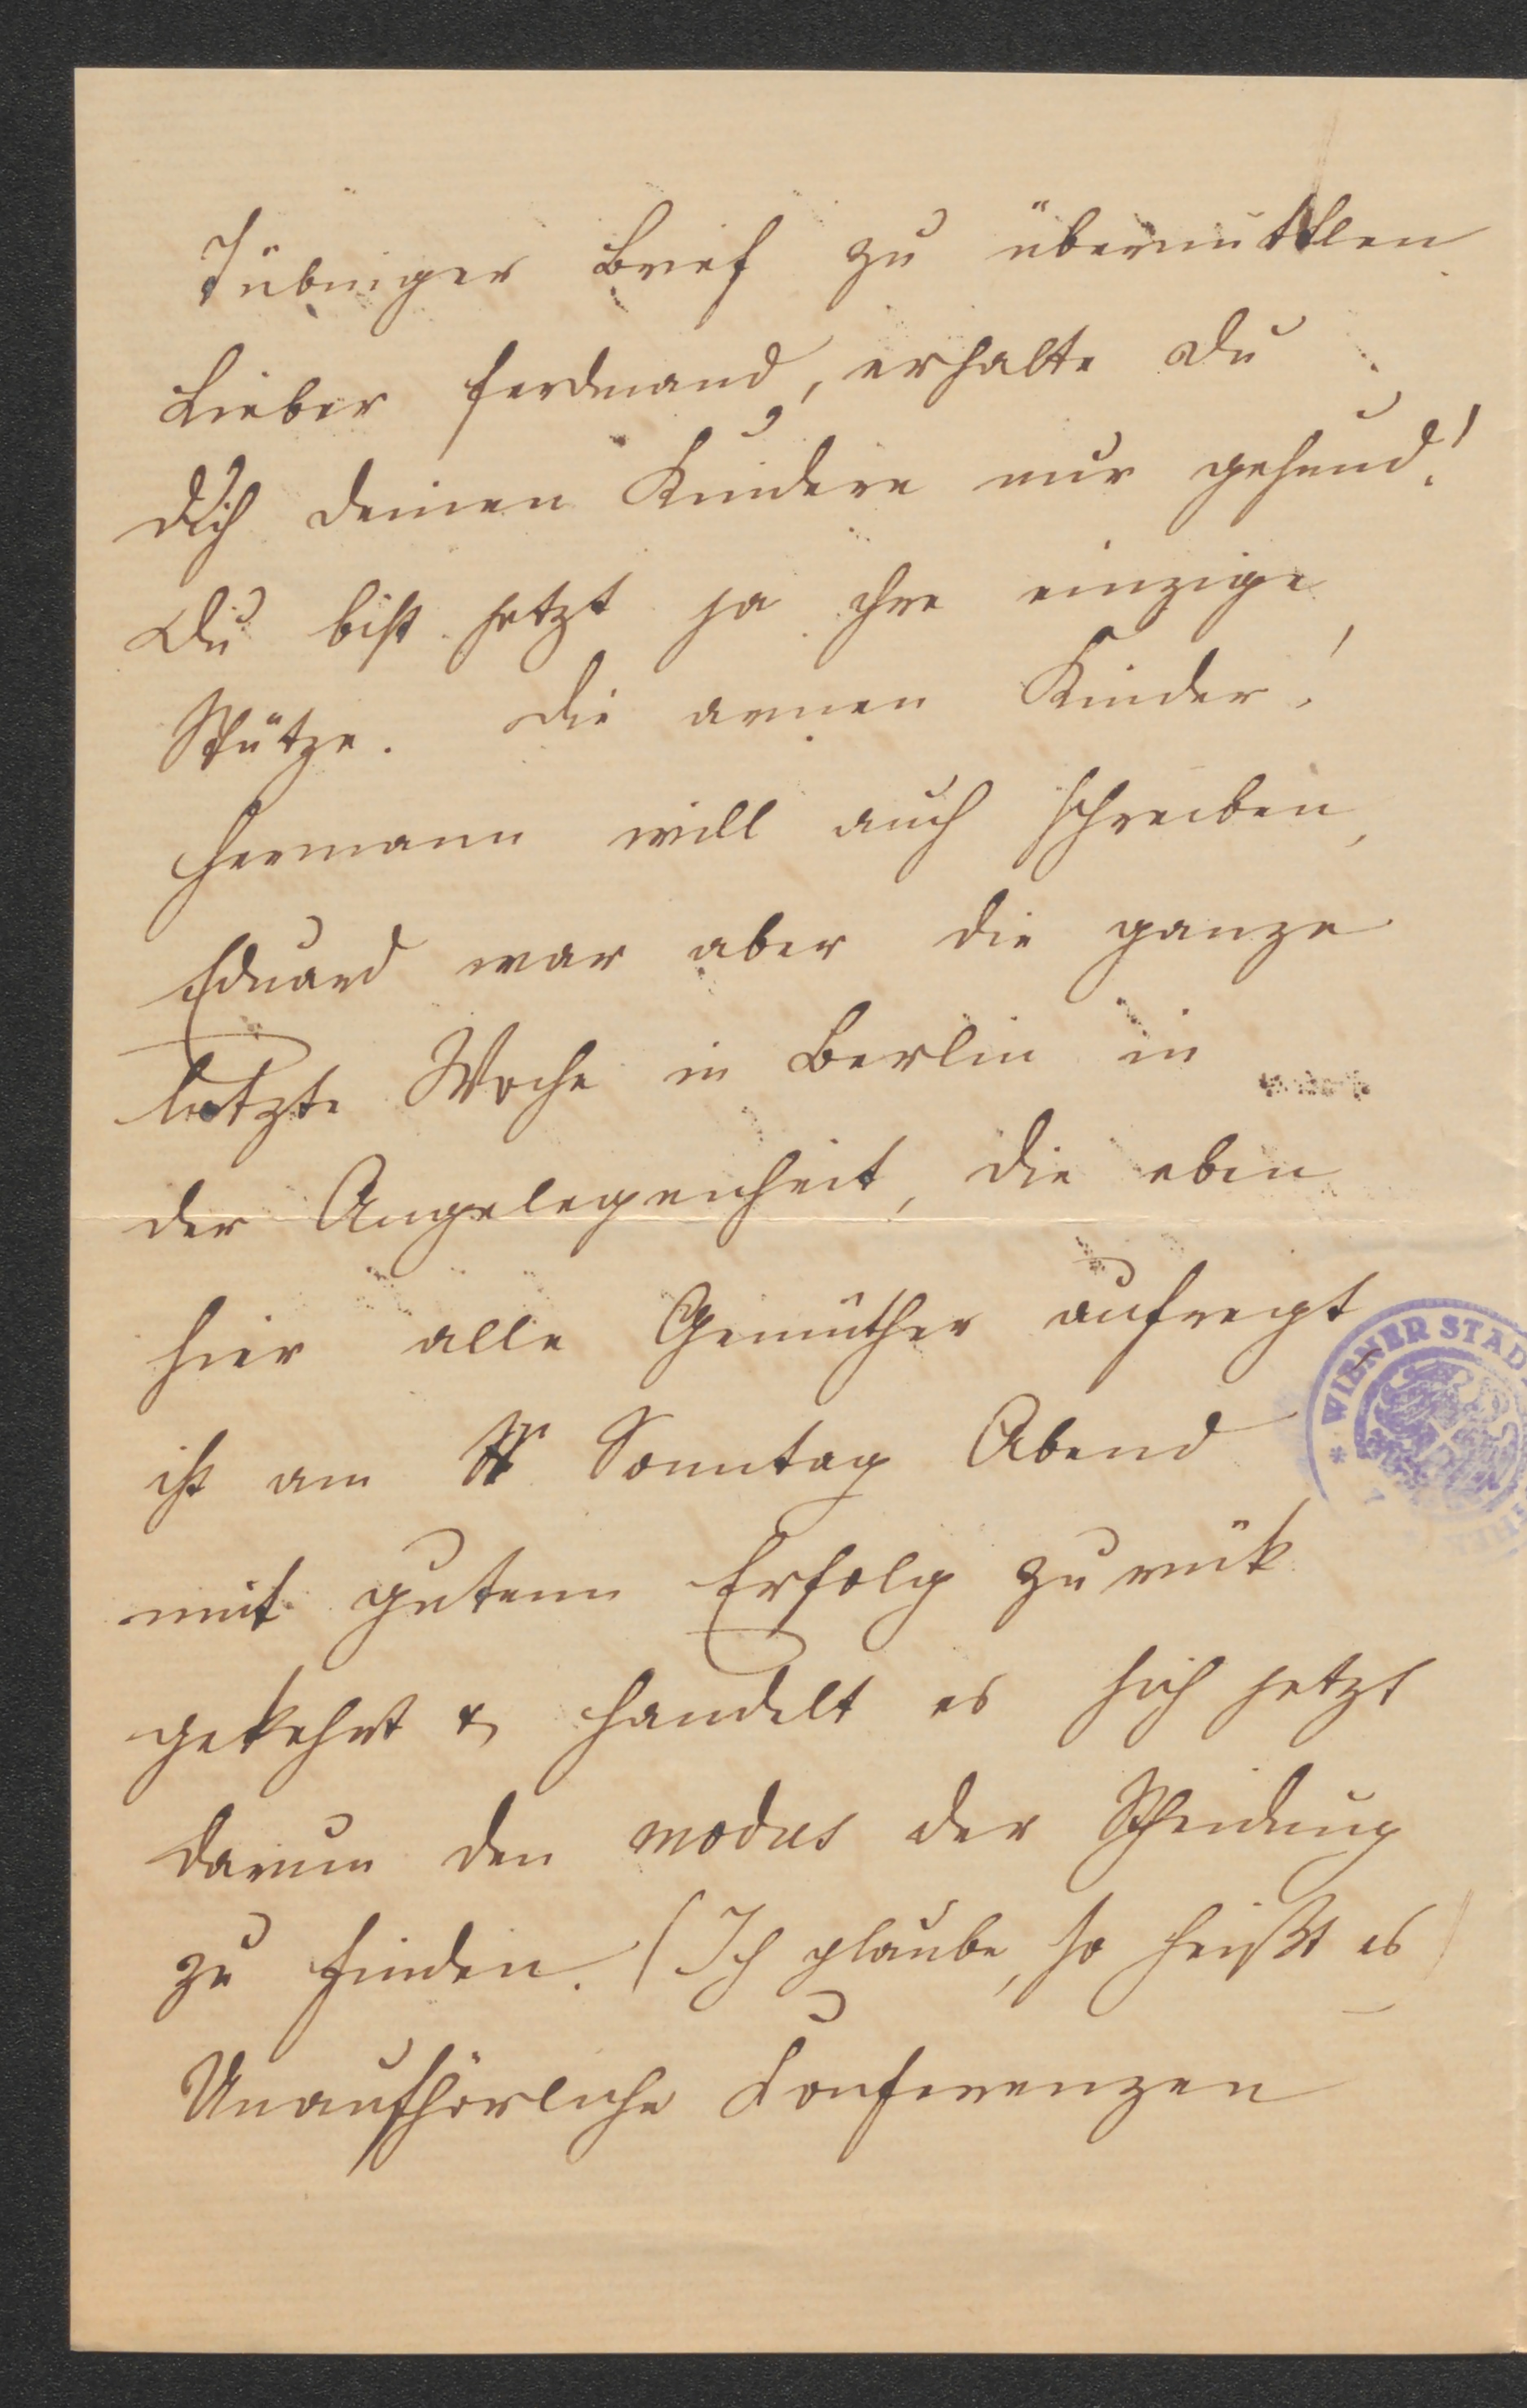 Tübinger Brief zu übermittlen
Lieber Ferdinand, erhalte Du
Dich deinen Kindern nur gesund!
Du bist jetzt ja ihre einzige
Stütze. Die armen Kinder!
Hermann will auch schreiben,
Eduard war aber die ganze
letzte Woche in Berlin in
der Angelegenheit, die eben
hier alle Gemüther aufregt
ist am Sonntag Abend
mit gutem Erfolg zurük
gekehrt & handelt es sich jetzt
darum den modus der Scheidung
zu finden. (Ich glaube, so heißt es)
Unaufhörliche Conferenzen
WIENER STAD